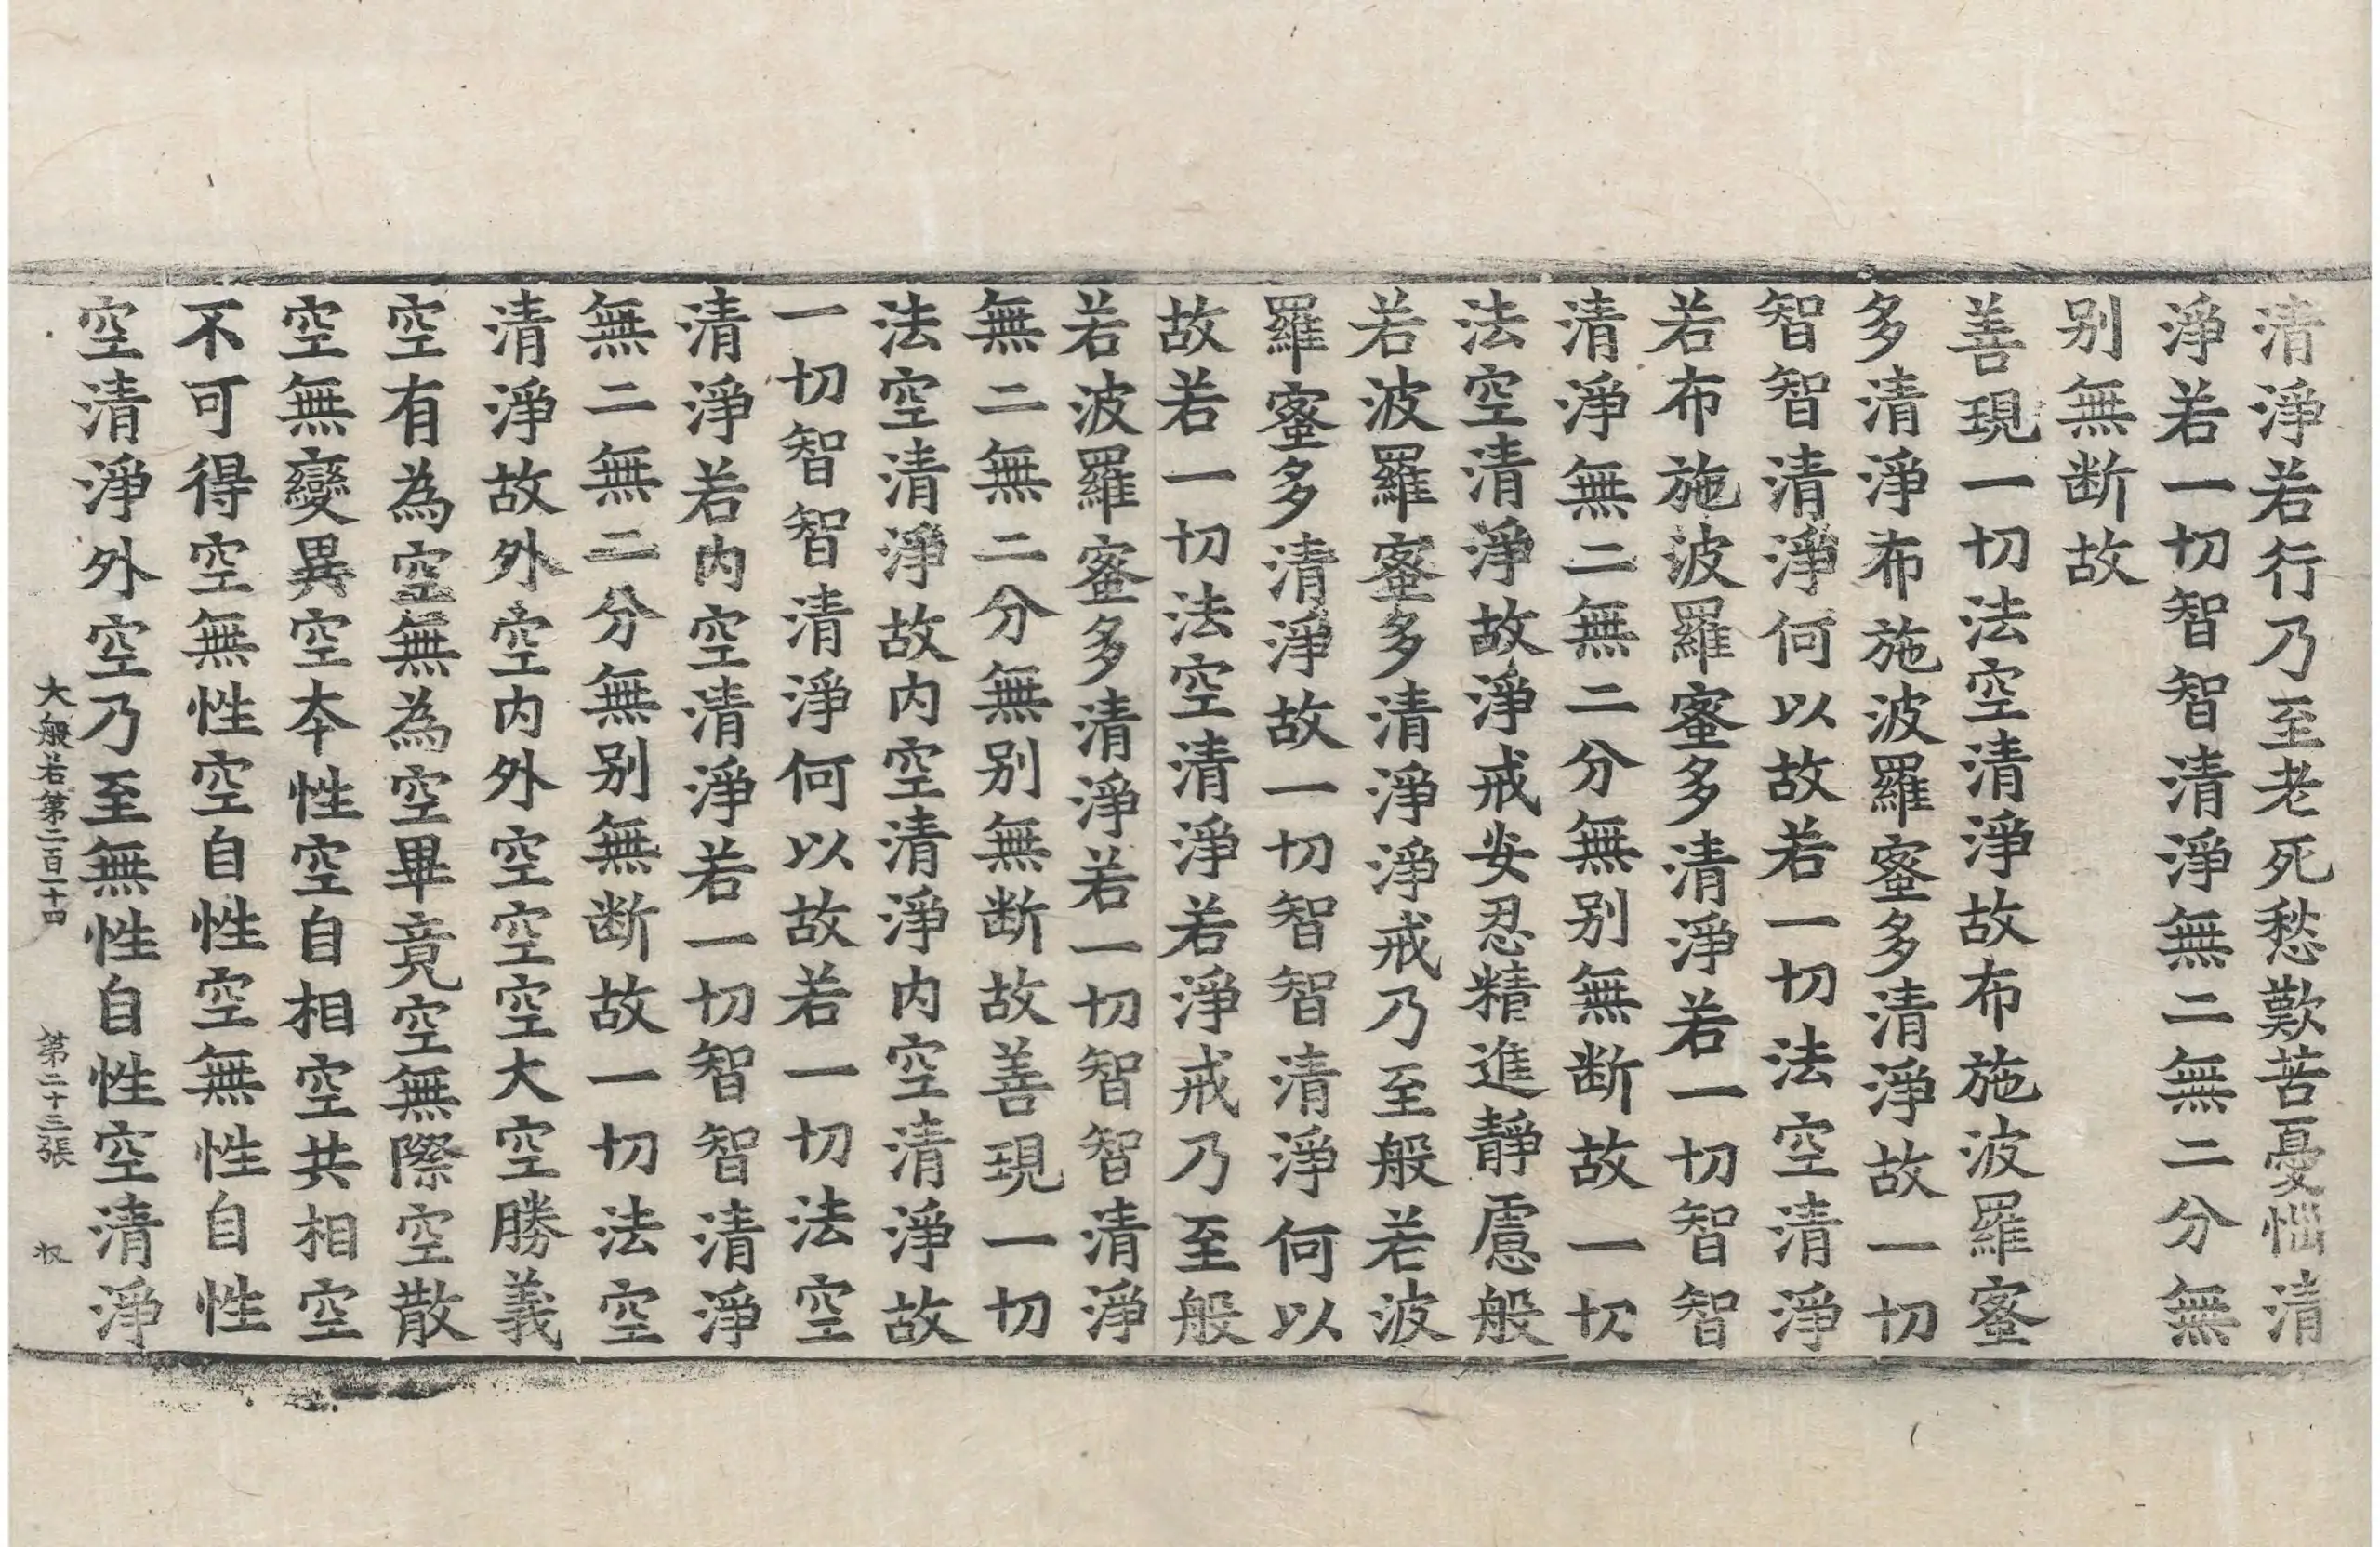 清淨若行乃至老死愁歎苦憂惱清
淨若一切智智清淨無二無二分無
别無断故
善現一切法空清淨故布施波羅蜜
多清淨布施波羅蜜多清淨故一切
智智清淨何以故若一切法空清淨
若布施波羅蜜多清淨若一切智智
清淨無二無二分無别無断故一切
法空清淨故淨戒安忍精進靜慮般
若波羅蜜多清淨淨戒乃至般若波
羅蜜多清淨故一切智智清淨何以
故若一切法空清淨若淨戒乃至般
若波羅蜜多清淨若一切智智清淨
無二無二分無别無断故善現一切
法空清淨故内空清淨内空清淨故
一切智智清淨何以故若一切法空
清淨若内空清淨若一切智智清淨
無二無二分無别無断故一切法空
清淨故外空内外空空空大空勝義
空有為空無為空畢竟空無際空散
空無變異空本性空自相空共相空
不可得空無性空自性空無性自性
空清淨外空乃至無性自性空清淨
大般若第二百二十四 第二十三張